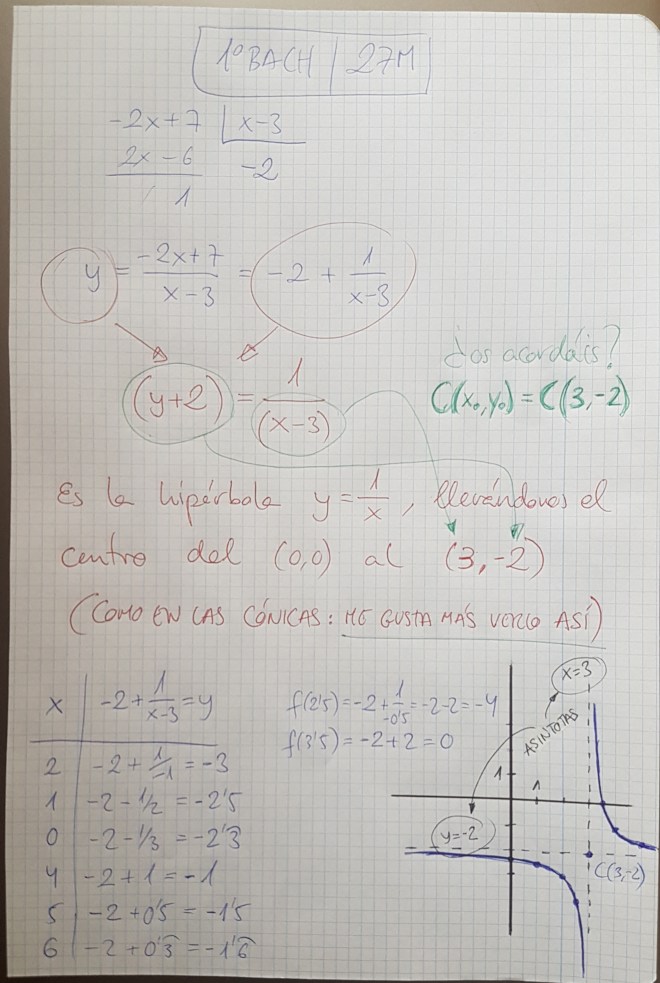 1º BACH | 27M
-2x+7 | x-3
2x-6 -2
/ 1
y = (-2x+7)/(x-3) = -2 + 1/(x-3)
¿os acordáis?
(y+2) = 1/(x-3)
C(x₀,y₀) = C(3,-2)
Es la hipérbola y = 1/x, llevándonos el
centro del (0,0) al (3,-2)
(COMO EN LAS CÓNICAS: ME GUSTA MÁS VERLO ASÍ)
x | -2 + 1/(x-3) = y
2 | -2 + 1/-1 = -3
1 | -2 - 1/2 = -2'5
0 | -2 - 1/3 = -2'3̂
4 | -2 + 1 = -1
5 | -2 + 0'5 = -1'5
6 | -2 + 0'3̂ = -1'6̂
f(2'5) = -2 + 1/-0'5 = -2-2 = -4
f(3'5) = -2+2 = 0
x=3
ASÍNTOTAS
1
1
y=-2
C(3,-2)